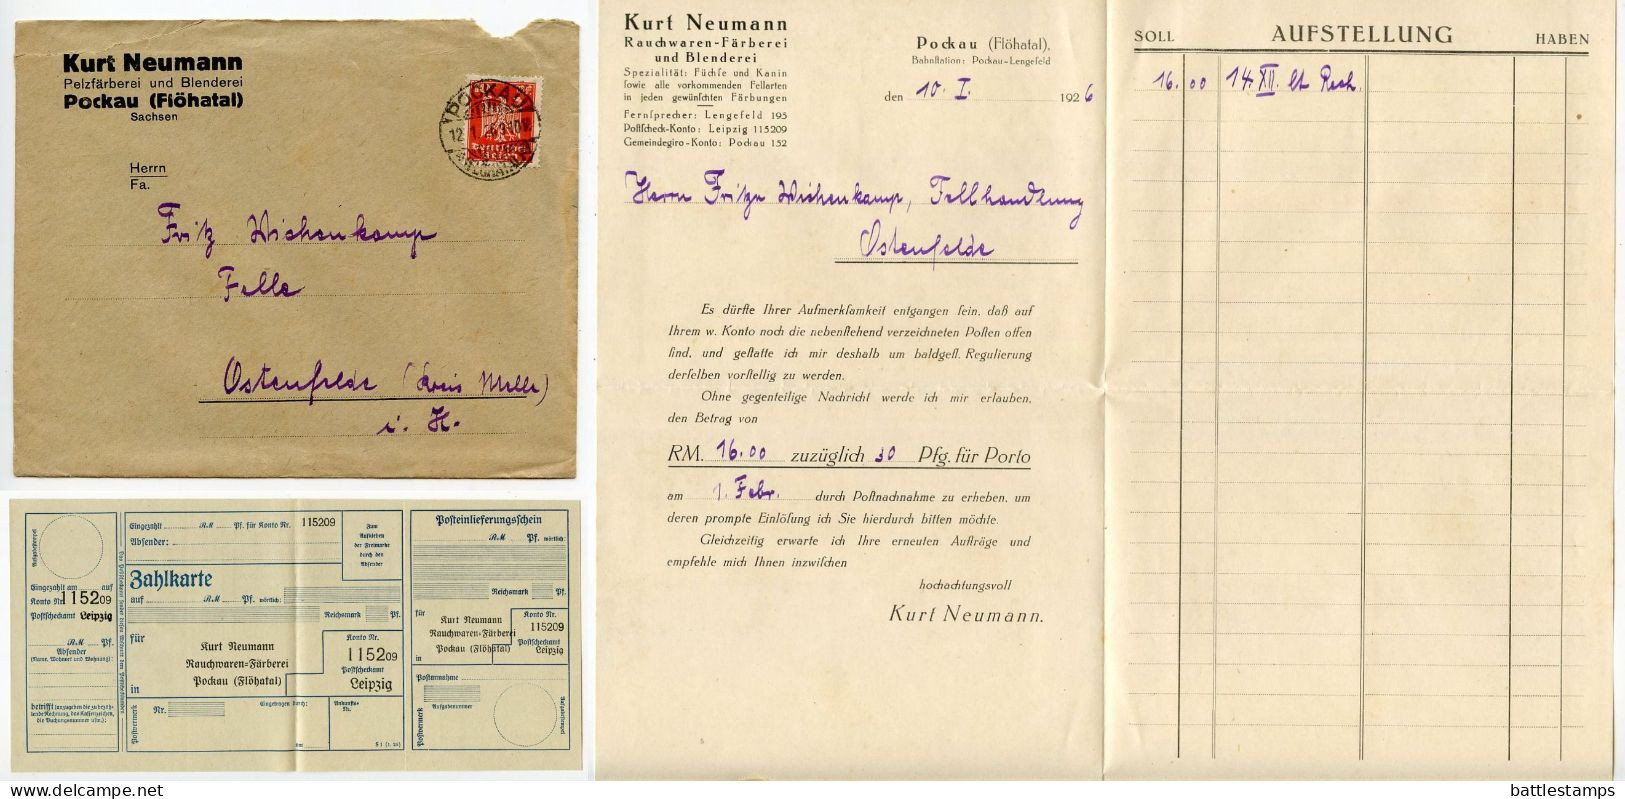 Kurt Neumann
Pelzfärberei und Blenderei
Pockau (Flöhatal)
Sachsen
POCKAU
12.1.26 9-10V.
Deutsches
Reich
Herrn
Fa.
Fritz Wichenkamp
Felle
Ostenfelde (Kreis Melle)
i. H.
Kurt Neumann
Rauchwaren-Färberei
und Blenderei
Spezialität: Füchse und Kanin
sowie alle vorkommenden Fellarten
in jeden gewünschten Färbungen
Fernsprecher: Lengefeld 195
Postscheck-Konto: Leipzig 115209
Gemeindegiro-Konto: Pockau 152
Pockau (Flöhatal),
Bahnstation: Pockau-Lengefeld
den 10. I. 1926
Herrn Fritz Wichenkamp, Fellhandlung
Ostenfelde
Es dürfte Ihrer Aufmerksamkeit entgangen sein, daß auf
Ihrem w. Konto noch die nebenstehend verzeichneten Posten offen
sind, und gestatte ich mir deshalb um baldgefl. Regulierung
derselben vorstellig zu werden.
Ohne gegenteilige Nachricht werde ich mir erlauben,
den Betrag von
RM. 16.00 zuzüglich 30 Pfg. für Porto
am 1. Febr. durch Postnachnahme zu erheben, um
deren prompte Einlösung ich Sie hierdurch bitten möchte.
Gleichzeitig erwarte ich Ihre erneuten Aufträge und
empfehle mich Ihnen inzwischen
hochachtungsvoll
Kurt Neumann.
SOLL AUFSTELLUNG HABEN
16.00 14. XII. lt Rech.
Eingezahlt am auf
Konto Nr. 115209
Postscheckamt Leipzig
RM Pf.
Absender
(Name, Wohnort und Wohnung):
betrifft
Eingezahlt RM Pf. für Konto Nr. 115209
Absender:
Zum
Aufkleben
der Freimarke
durch den
Absender
Zahlkarte
auf RM Pf. wörtlich:
Reichsmark Pf.
für
Kurt Neumann
Rauchwaren-Färberei
in Pockau (Flöhatal)
Konto Nr.
115209
Postscheckamt
Leipzig
Postvermerk
Nr.
Eingetragen durch:
am
Ankunfts-
Nr.
Posteinlieferungsschein
RM Pf. wörtlich:
Reichsmark Pf.
für
Kurt Neumann
Rauchwaren-Färberei
Pockau (Flöhatal)
in
Konto Nr.
115209
Postscheckamt
Leipzig
Postannahme
Aufgabenummer
Postvermerk
www.delcampe.net
battlestamps